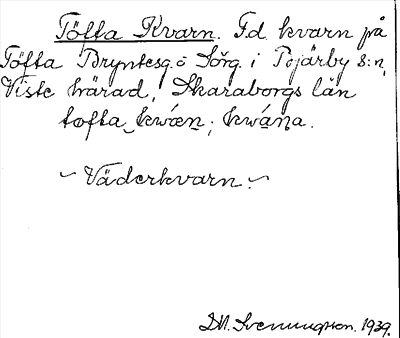 Töfta Kvarn. F.d. kvarn på
Töfta Bryntesg. o Sörg. i Bjärby s:n,
Viste härad, Skaraborgs län
tofta kwæn; kwáṇa.
~ Väderkvarn. ~
D.N. Svenungson. 1939.